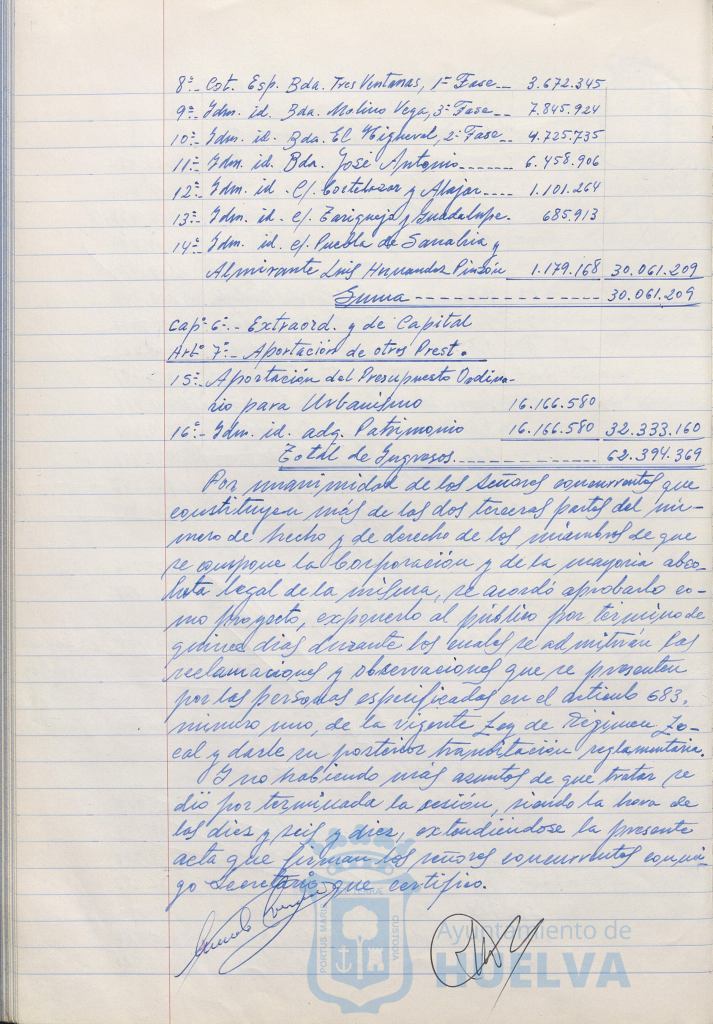 8ª.- Cot. Esp. Bda. Tres Ventanas, 1ª Fase -- 3.672.345
9ª.- Idm. id. Bda. Molino Vega, 3ª Fase -- 7.845.924
10ª.- Idm. id. Bda. El Higueral, 2ª Fase -- 4.725.735
11ª.- Idm. id. Bda. José Antonio ------- 6.458.906
12ª.- Idm. id. C/. Cortelazor y Alajar ---- 1.101.264
13ª.- Idm. id. c/. Tariquejo y Guadalupe. 685.913
14ª.- Idm. id. c/. Puebla de Sanabria y
Almirante Luis Hernandez Pinzón 1.179.168 30.061.209
Suma ---------------- 30.061.209
Capº 6º.- Extraord. y de Capital
Artº 7º.- Aportación de otros Prest.
15ª.- Aportación del Presupuesto Ordina-
rio para Urbanismo 16.166.580
16ª.- Idm. id. adq. Patrimonio 16.166.580 32.333.160
Total de Ingresos ------------ 62.394.369
Por unanimidad de los señores concurrentes que
constituyen más de las dos terceras partes del nú-
mero de hecho y de derecho de los miembros de que
se compone la Corporación y de la mayoria abso-
luta legal de la misma, se acordó aprobarlo co-
mo proyecto, exponerlo al público por término de
quince dias durante los cuales se admitirán las
reclamaciones y observaciones que se presenten
por las personas especificadas en el artículo 683,
número uno, de la vigente Ley de Régimen Lo-
cal y darle su posterior tramitación reglamentaria.
Y no habiendo más asuntos de que tratar se
dió por terminada la sesión, siendo la hora de
las diez y seis y diez, extendiéndose la presente
acta que firman los señores concurrentes conmi-
go Secretario que certifico.
PORTUS MARIS CUSTODIA
Ayuntamiento de
HUELVA